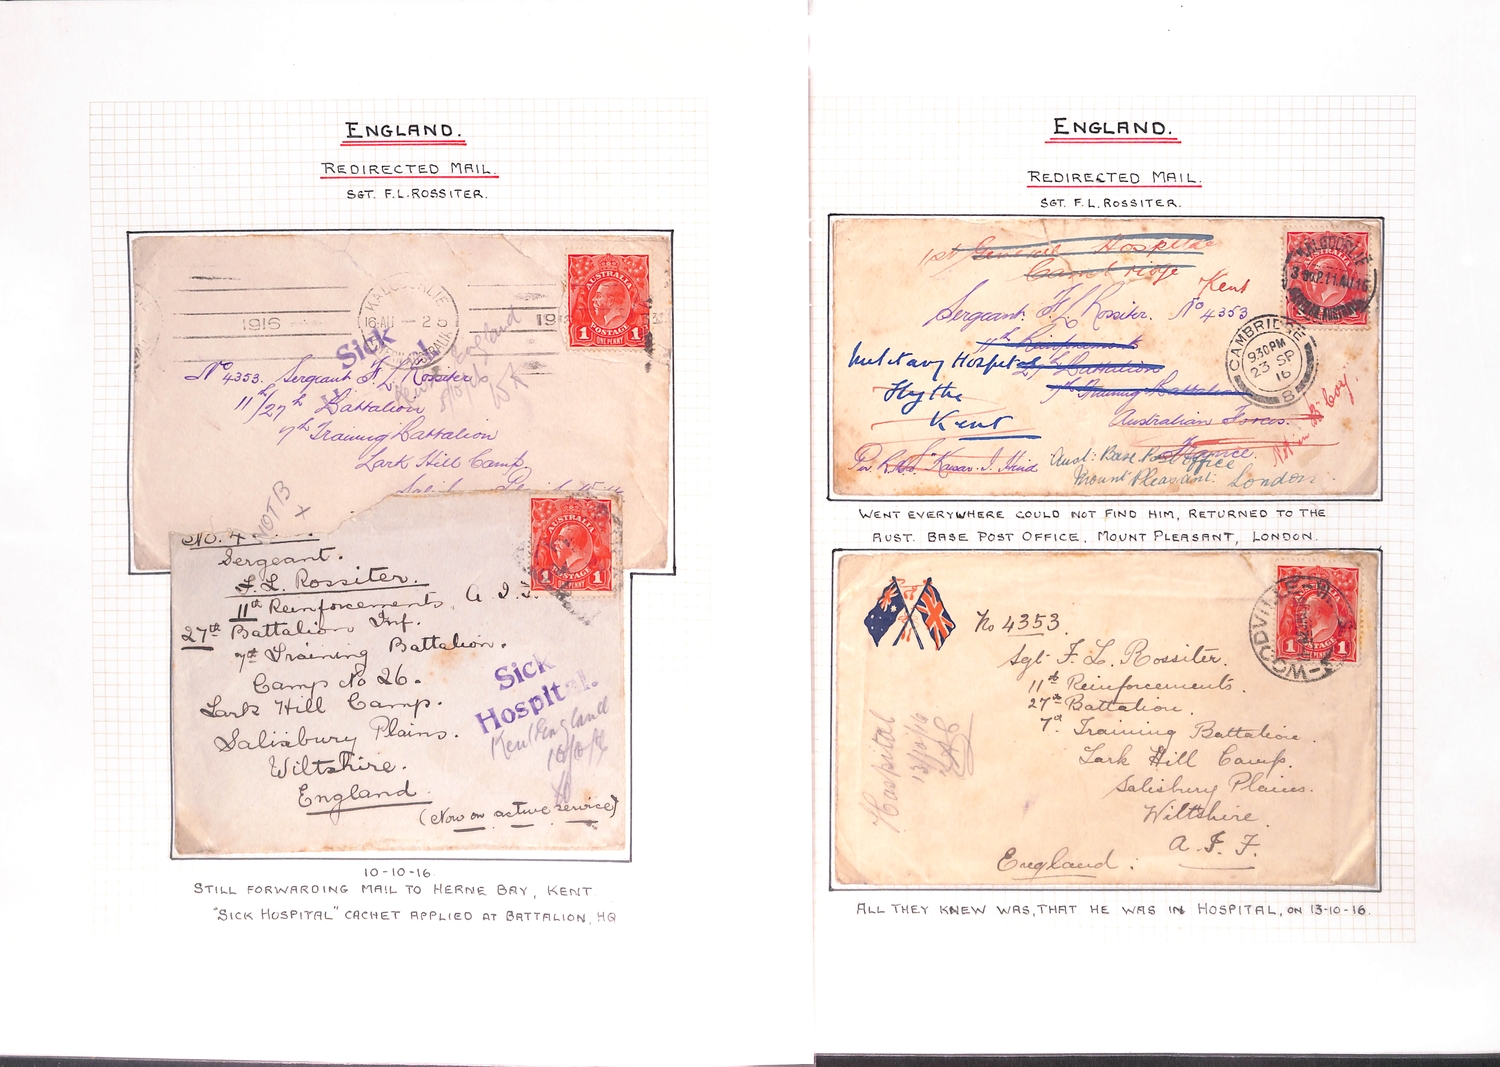 ENGLAND.
REDIRECTED MAIL.
SGT. F.L. ROSSITER.
1916
KALGOORLIE
16·AU — 2
AUSTRALIA
POSTAGE
1 1
ONE PENNY
Sick
England
No 4353. Sergeant F. L. Rossiter
11th/27th Battalion
7th Training Battalion
Lark Hill Camp
NOT B
X
No. 4
Sergeant.
F. L. Rossiter.
11th Reinforcements, A. I. F.
27th Battalion Inf.
7th Training Battalion.
Camp No 26.
Lark Hill Camp.
Salisbury Plains.
Wiltshire.
England.
(Now on active service)
AUSTRALIA
POSTAGE
1 1
Sick
Hospital.
Kent England
10/10/16
10-10-16.
STILL FORWARDING MAIL TO HERNE BAY, KENT
"SICK HOSPITAL" CACHET APPLIED AT BATTALION, HQ
ENGLAND.
REDIRECTED MAIL.
SGT. F.L. ROSSITER.
1st General Hospital
Cambridge
Kent
Sergeant F. L. Rossiter. No 4353
11th Reinforcements
Military Hospital 27 Battalion
Hythe 7th Training Battalion
Kent Australian Forces.
France.
Per R.M.S. "Kaisar-I-Hind
Aust: Base Post Office
Mount Pleasant: London.
Not in "B" Coy.
KALGOORLIE
CAMBRIDGE
9 30PM
23 SP
16
8
WENT EVERYWHERE COULD NOT FIND HIM, RETURNED TO THE
AUST. BASE POST OFFICE, MOUNT PLEASANT, LONDON.
No 4353.
Sgt. F. L. Rossiter.
11th Reinforcements.
27th Battalion.
7th Training Battalion.
Lark Hill Camp.
Salisbury Plains.
Wiltshire.
A. I. F.
England.
Hospital
13/10/16
WOODVILLE
1 1
ALL THEY KNEW WAS, THAT HE WAS IN HOSPITAL, ON 13-10-16.